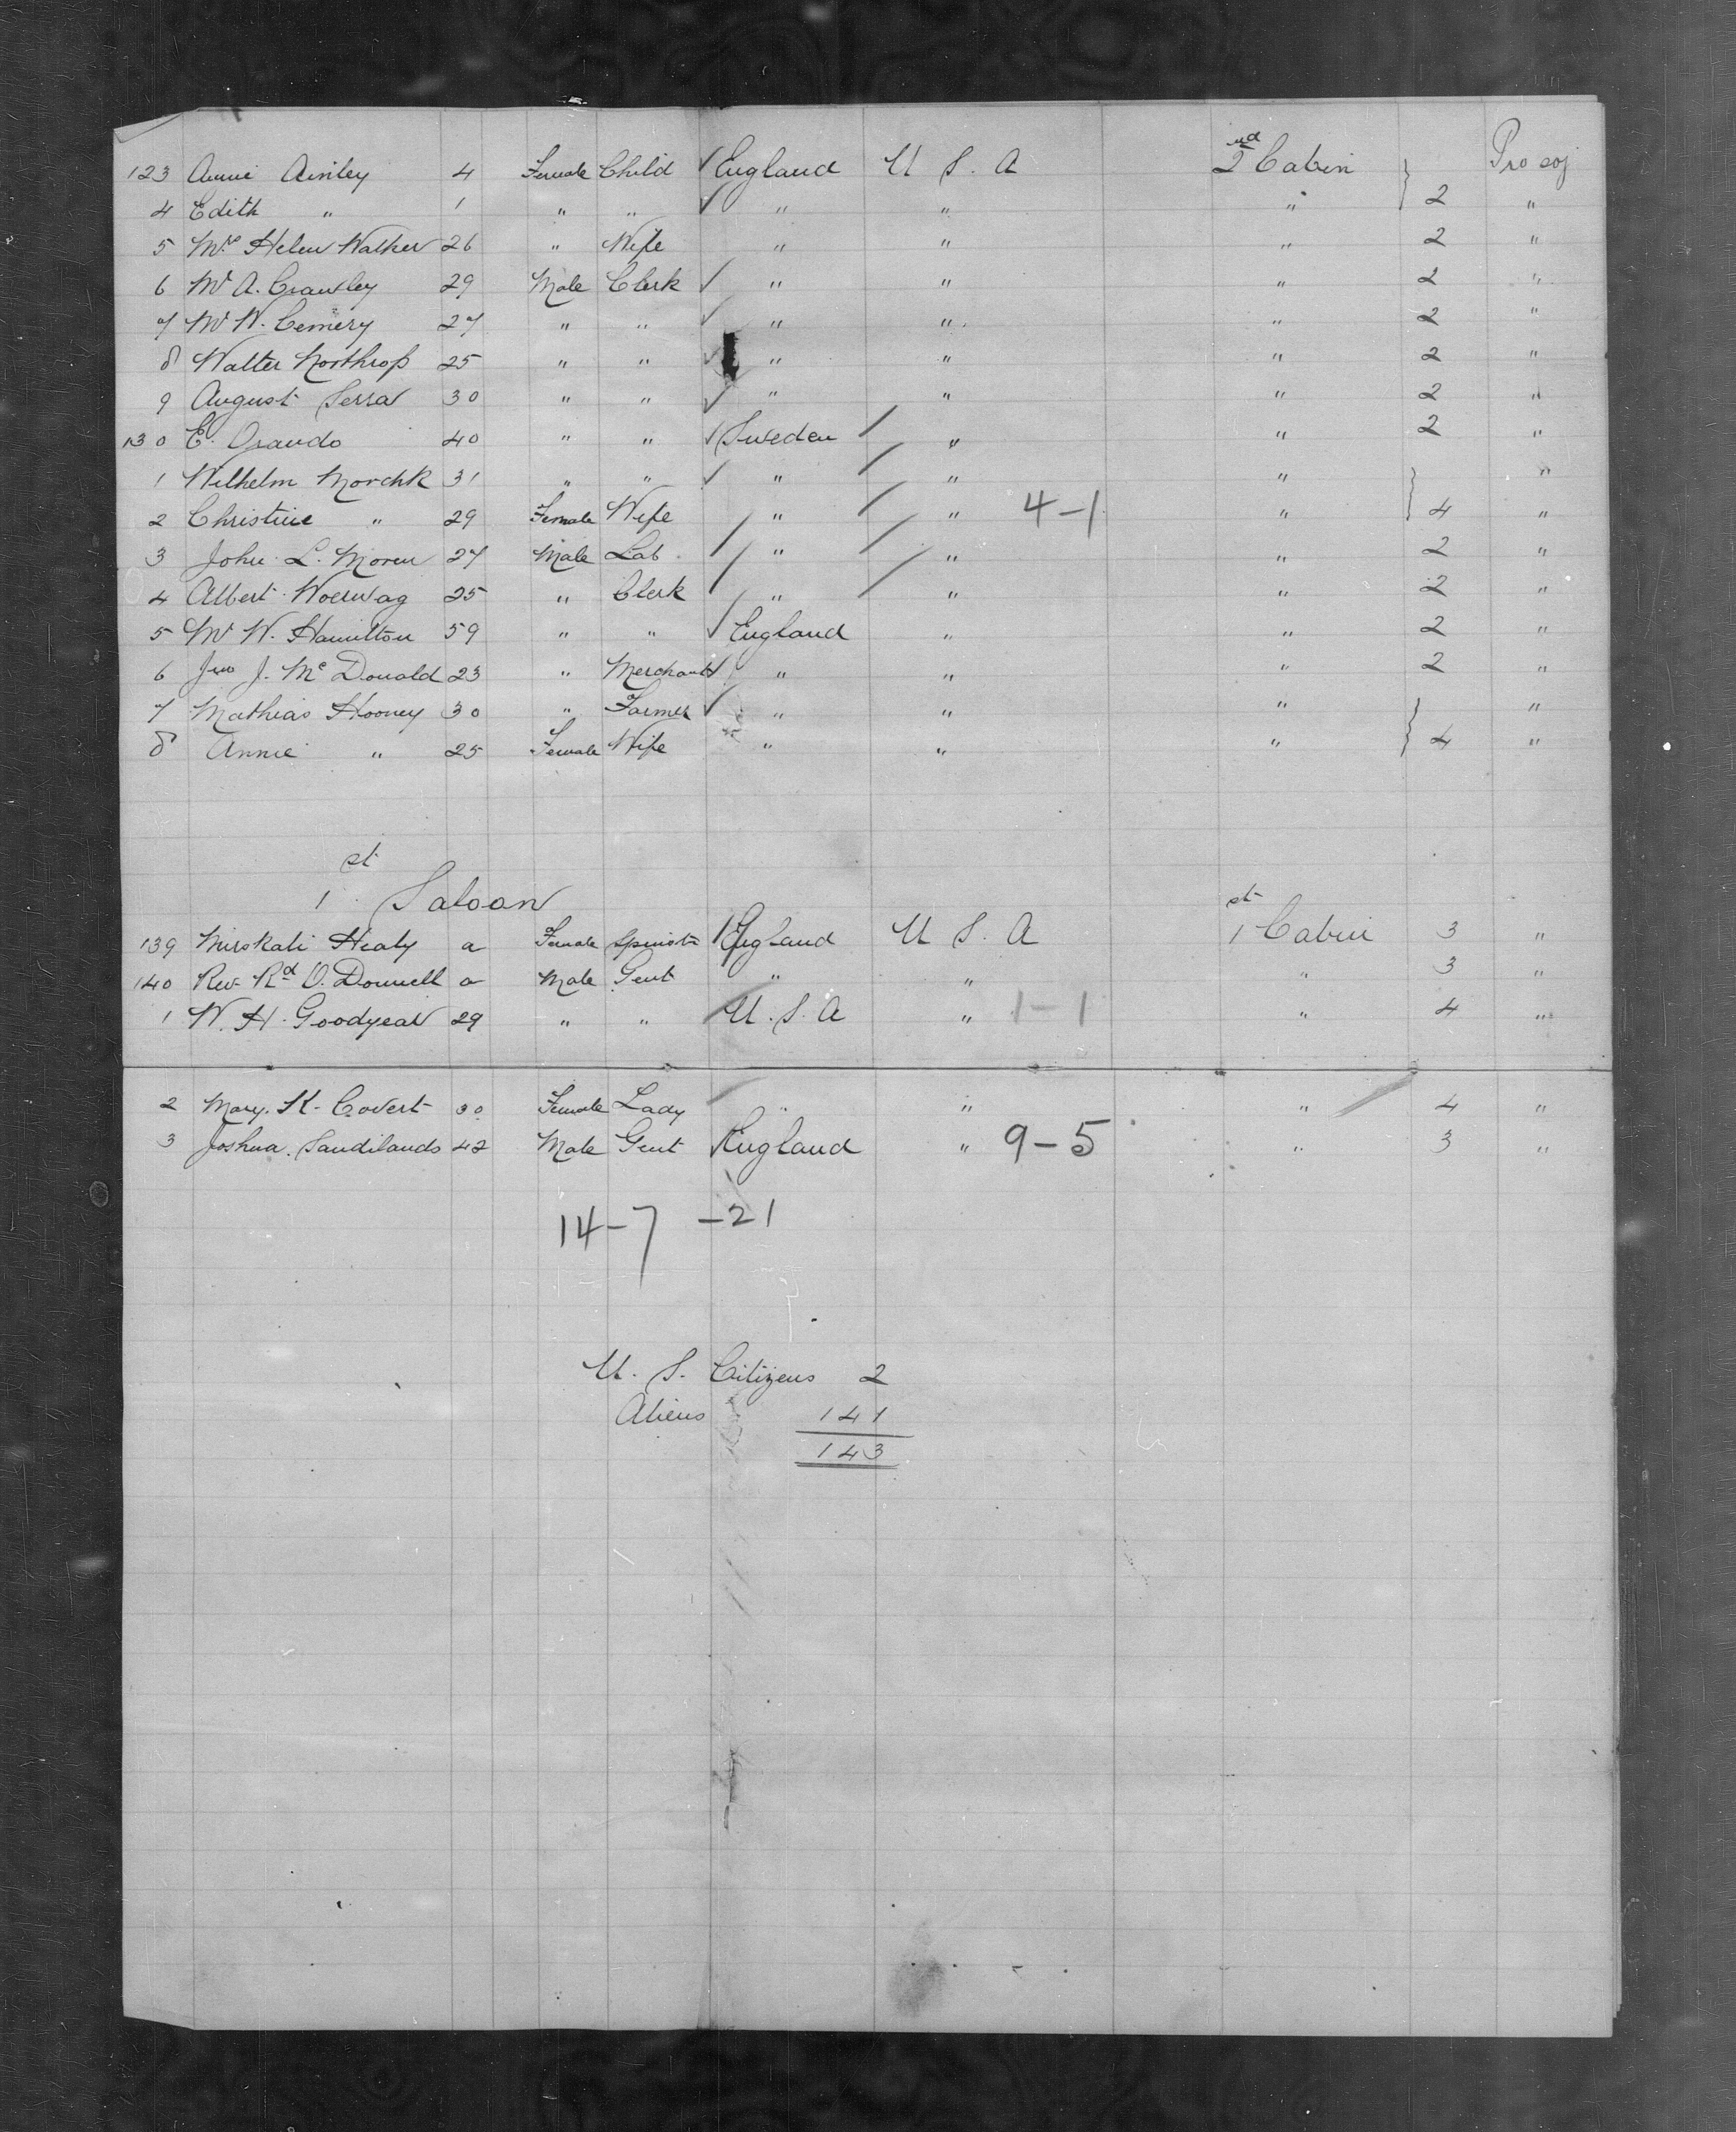 123 Annie Ainley 4 Female Child ✓ England U S. A 2nd Cabin Pro soj
4 Edith " 1 " " ✓ " " " 2 "
5 Mrs Helen Walker 26 " Wife " " " 2 "
6 Mr A. Crawley 29 Male Clerk ✓ " " " 2 "
7 Mr W. Cemery 27 " " ✓ " " " 2 "
8 Walter Northrop 25 " " ✓ " " " 2 "
9 August Serra 30 " " ✓ " " " 2 "
130 E. 40 " " ✓ Sweden / " " 2 "
1 Wilhelm Morchk 31 " " ✓ " / " " "
2 Christine " 29 Female Wife " / " 4-1 " 4 "
3 John L. Moren 27 Male Lab. / " / " " 2 "
4 Albert Woerwag 25 " Clerk / " / " " 2 "
5 Mr W. Hamilton 59 " " ✓ England " " 2 "
6 Jno J. Mc Donald 23 " Merchant ✓ " " " 2 "
7 Mathias Hooney 30 " Farmer ✓ " " " "
8 Annie " 25 Female Wife " " " 4 "
1st Saloon
139 Healy a Female Spinstr England U S. A 1st Cabin 3 "
140 Rev. Rd O. Donnell a Male Gent " " " 3 "
1 W. H. Goodyear 29 " " U. S. A " 1-1 " 4 "
2 Mary. K. Covert 30 Female Lady " " " 4 "
3 Joshua. Sandilands 42 Male Gent England " 9-5 " 3 "
14-7 -21
U. S. Citizens 2
Aliens 141
143